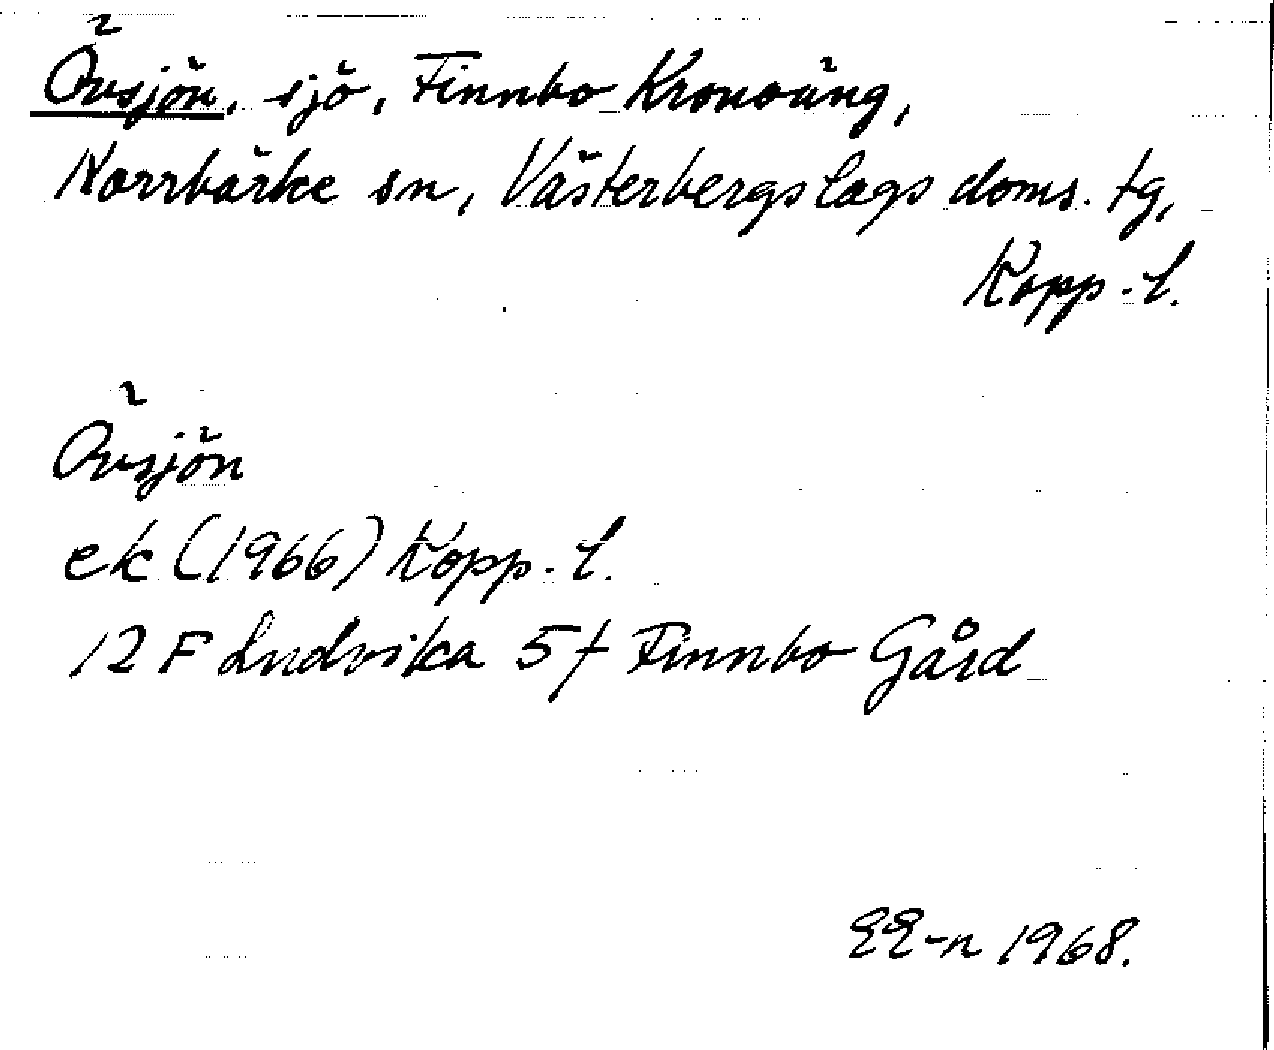 Övsjön, sjö, Finnbo Kronoäng,
Norrbärke sn, Västerbergslags doms. tg,
Kopp. l.
Övsjön
ek (1966) Kopp. l.
12 F Ludvika 5f Finnbo Gård
EE-n 1968.